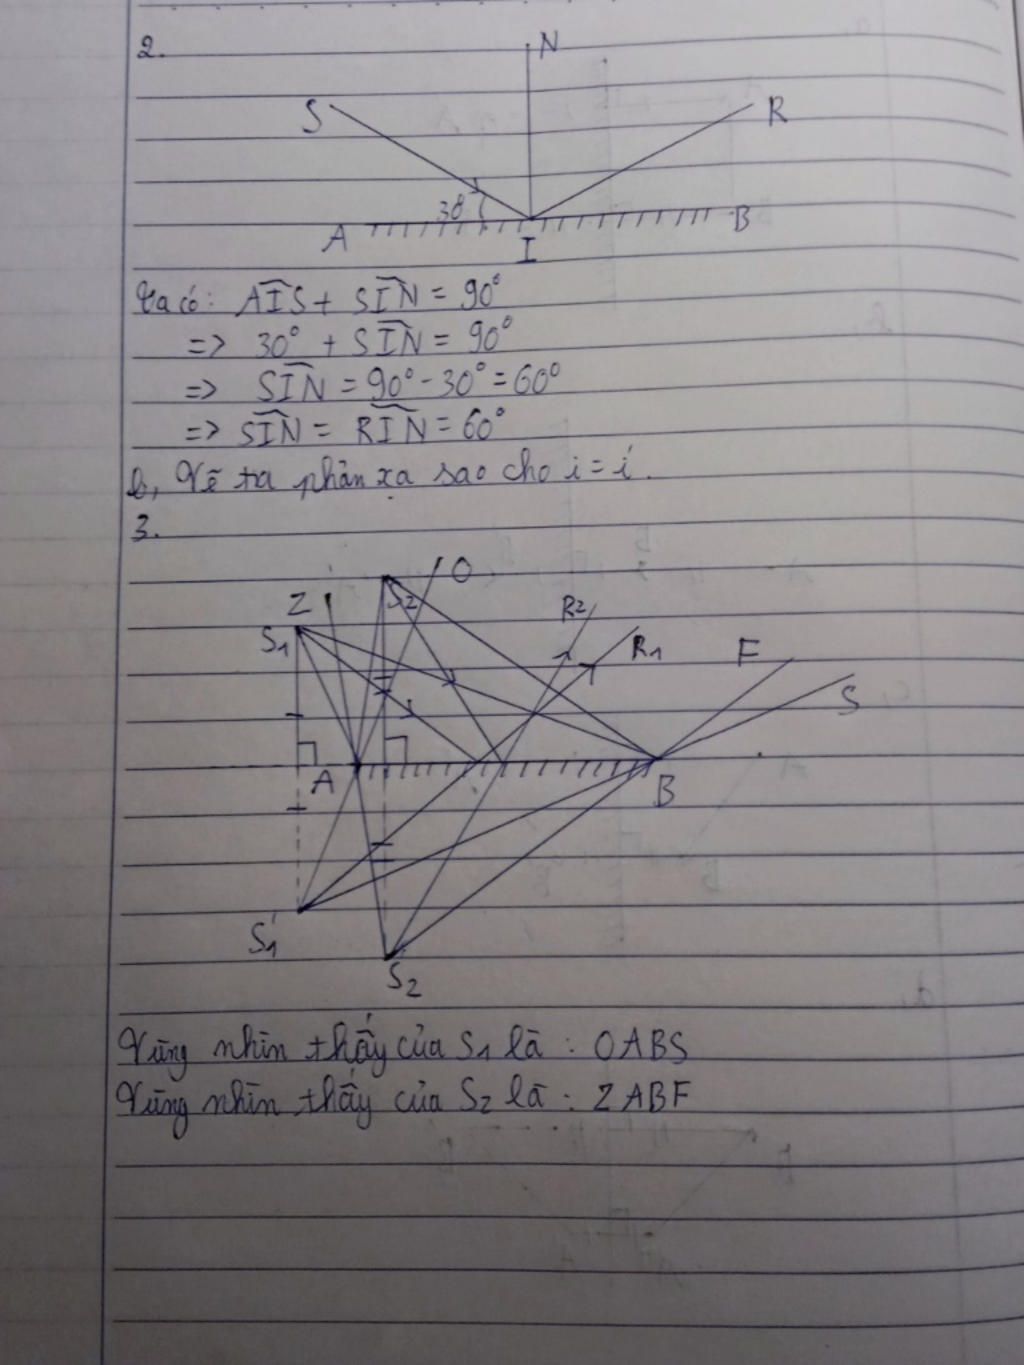 2.
N
S
R
30
A
B
I
Ta có: AIS + SIN = 90°
=> 30° + SIN = 90°
=> SIN = 90° - 30° = 60°
=> SIN = RIN = 60°
b, Vẽ tia phản xạ sao cho i = i'.
3.
Z
S2
O
R2
S1
R1
F
S
A
B
S1'
S2
Vùng nhìn thấy của S1 là : OABS
Vùng nhìn thấy của S2 là : ZABF